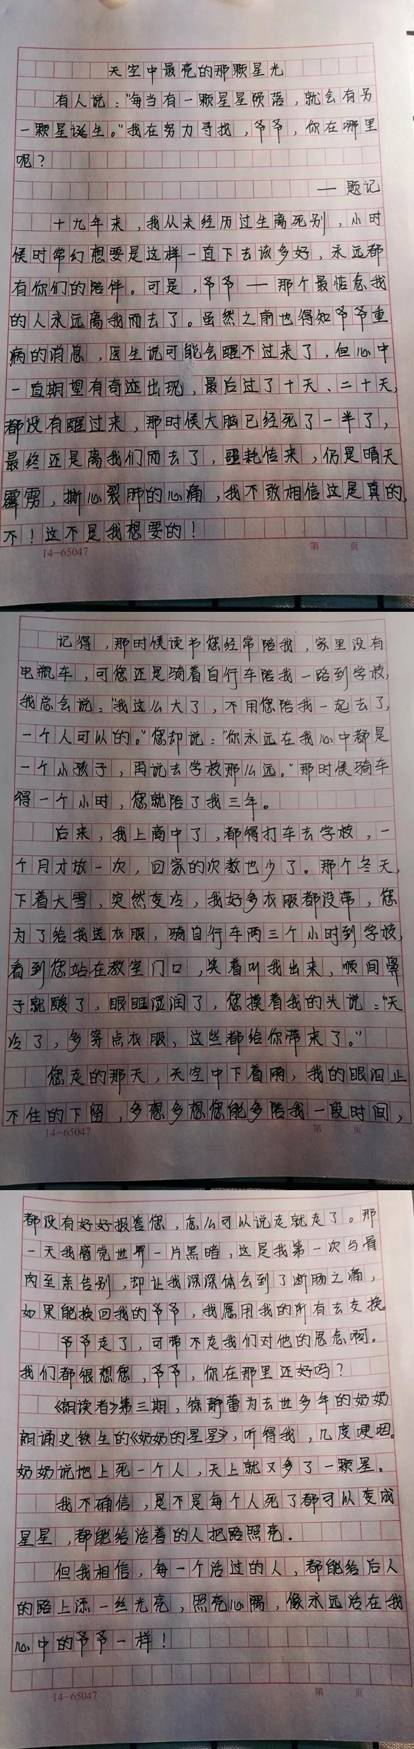 天空中最亮的那颗星光
有人说："每当有一颗星星陨落，就会有另
一颗星诞生。"我在努力寻找，爷爷，你在哪里
呢？
— 题记
十九年来，我从未经历过生离死别，小时
候时常幻想要是这样一直下去该多好，永远都
有你们的陪伴。可是，爷爷 — 那个最惦念我
的人永远离我而去了。虽然之前也得知爷爷重
病的消息，医生说可能会醒不过来了，但心中
一直期望有奇迹出现，最后过了十天、二十天，
都没有醒过来，那时候大脑已经死了一半了，
最终还是离我们而去了，噩耗传来，仍是晴天
霹雳，撕心裂肺的心痛，我不敢相信这是真的，
不！这不是我想要的！
14-65047 第 页
记得，那时候读书您经常陪我，家里没有
电瓶车，可您还是骑着自行车陪我一路到学校，
我总会说："我这么大了，不用您陪我一起去了，
一个人可以的。"您却说："你永远在我心中都是
一个小孩子，再说去学校那么远。"那时候骑车
得一个小时，您就陪了我三年。
后来，我上高中了，都得打车去学校，一
个月才放一次，回家的次数也少了。那个冬天，
下着大雪，突然变冷，我好多衣服都没带，您
为了给我送衣服，骑自行车两三个小时到学校，
看到您站在教室门口，笑着叫我出来，顺间鼻
子就酸了，眼眶湿润了，您摸着我的头说："天
冷了，多穿点衣服，这些都给你带来了。"
您走的那天，天空中下着雨，我的眼泪止
不住的下留，多想多想您能多陪我一段时间，
14-65047 第 页
都没有好好报答您，怎么可以说走就走了。那
一天我感觉世界一片黑暗，这是我第一次与骨
肉至亲告别，却让我深深体会到了断肠之痛，
如果能换回我的爷爷，我愿用我的所有去交换。
爷爷走了，可带不走我们对他的思念啊。
我们都很想您，爷爷，你在那里还好吗？
《朗读者》第三期，徐静蕾为去世多年的奶奶
朗诵史铁生的《奶奶的星星》，听得我，几度哽咽。
奶奶说地上死一个人，天上就又多了一颗星。
我不确信，是不是每个人死了都可以变成
星星，都能给活着的人把路照亮。
但我相信，每一个活过的人，都能给后人
的路上添一丝光亮，照亮心隅，像永远活在我
心中的爷爷一样！
14-65047 第 页